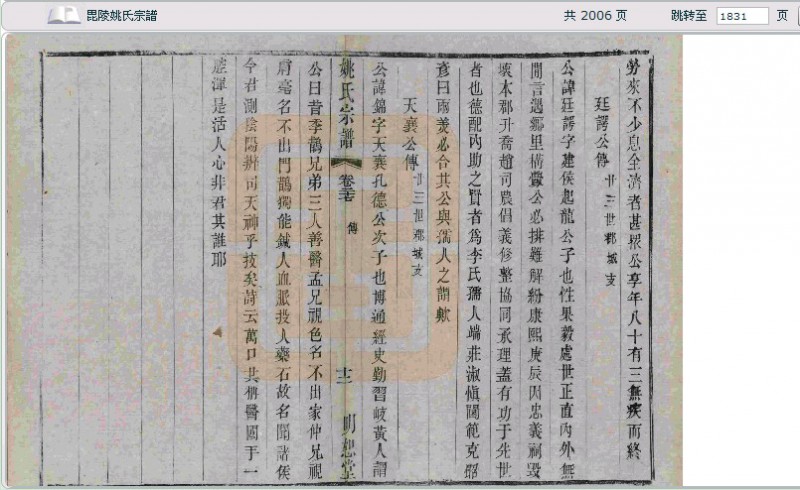 毘陵姚氏宗譜
共 2006 页
跳转至 1831 页
勞來不少息全濟者甚眾公享年八十有三無疾而終
廷諤公傳 廿三世鄴城支
公諱廷諤字建侯起龍公子也性果毅處世正直內外無
閒言遇鄉里構釁公必排難解紛康熙庚辰因忠義祠毀
壞本郡升喬趙司農倡義修整協同承理蓋有功于先世
者也德配內助之賢者為李氏孺人端莊淑愼閫範克昭
彥曰兩美必合其公與孺人之謂歟
天襄公傳 廿三世鄴城支
公諱錦字天襄孔德公次子也博通經史勤習岐黃人謂
姚氏宗譜 卷 傳 十二 明恕堂
公曰昔季鵲兄弟三人善醫孟兄視色名不出家仲兄視
毫名不出門鵲獨能鍼人血脈投人藥石故名聞諸侯
今君測陰陽辨司天神乎技矣詩云萬口共稱醫國手一
腔渾是活人心非君其誰耶